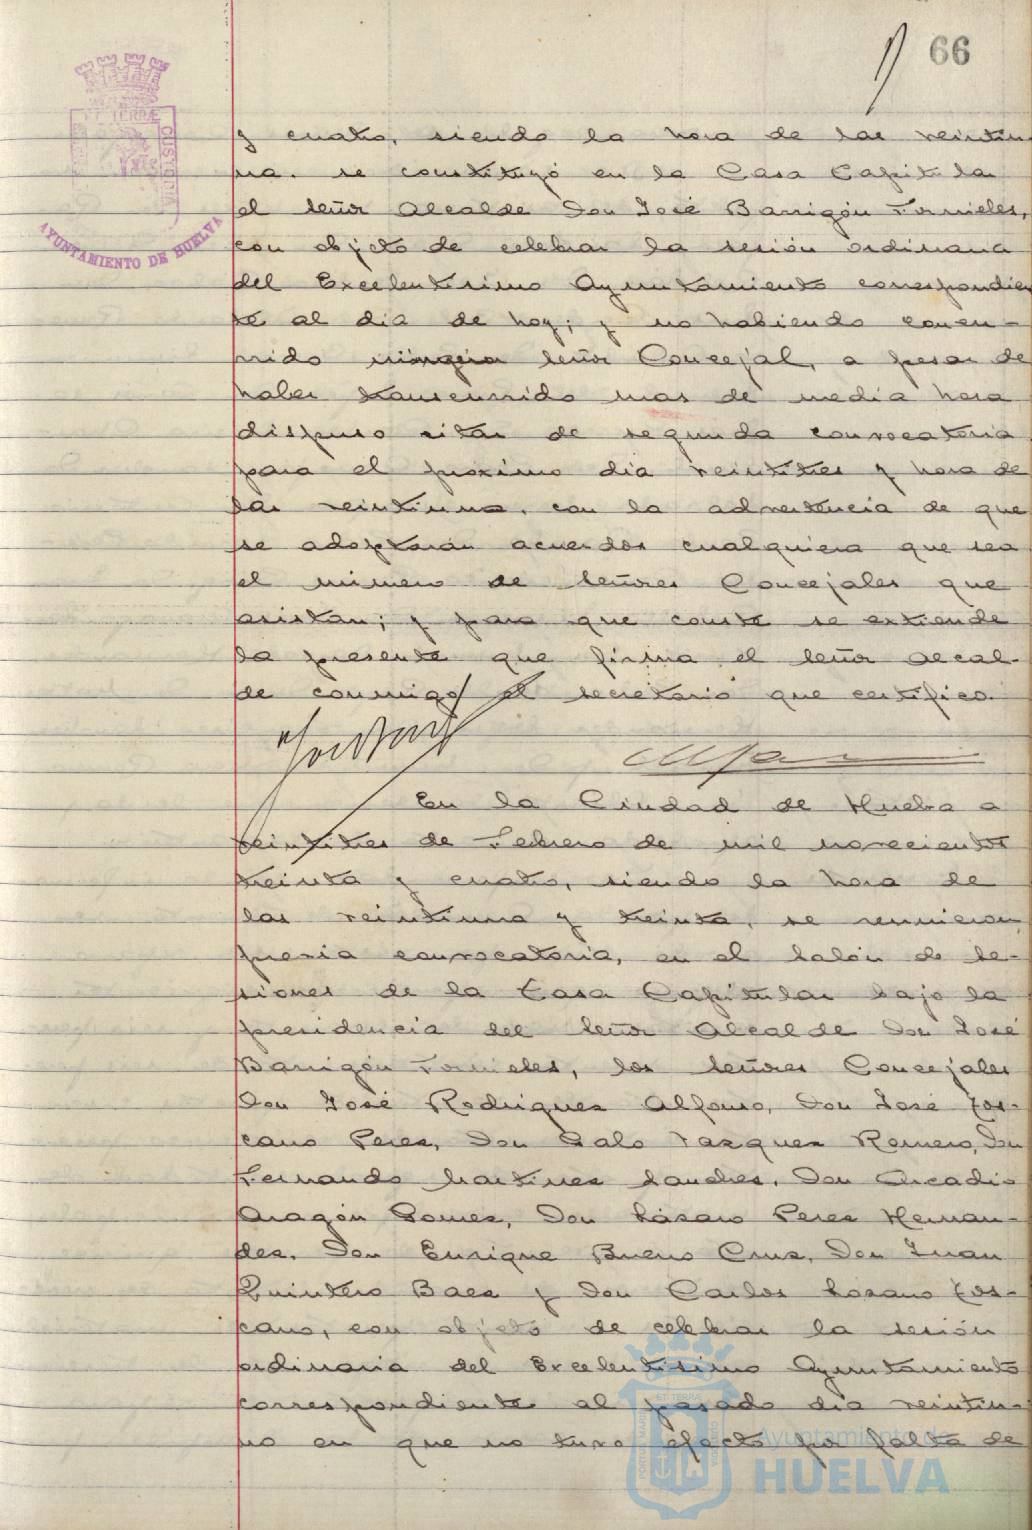 66
y cuatro, siendo la hora de las veintiu-
na. se constituyó en la Casa Capitular
el señor Alcalde Don José Barrigón Fornieles,
con objeto de celebrar la sesión ordinaria
del Excelentisimo Ayuntamiento correspondien
te al dia de hoy; y no habiendo concu-
rrido ningun señor Concejal, a pesar de
haber transcurrido mas de media hora
dispuso citar de segunda convocatoria
para el proximo dia veintitres y hora de
las veintiuna, con la advertencia de que
se adoptarán acuerdos cualquiera que sea
el número de señores Concejales que
asistan; y para que conste se extiende
la presente que firma el señor Alcal-
de conmigo el secretario que certifico.
En la Ciudad de Huelva a
veintitres de Febrero de mil novecientos
treinta y cuatro, siendo la hora de
las veintiuna y treinta, se reunieron
previa convocatoria, en el salón de se-
siones de la Casa Capitular bajo la
presidencia del señor Alcalde Don José
Barrigón Fornieles, los señores Concejales
Don José Rodriguez Alfonso, Don José Tos-
cano Perez, Don Galo Vazquez Romero, Don
Fernando Martinez Sanchez, Don Arcadio
Aragón Gomez, Don Lázaro Perez Hernan-
dez, Don Enrique Bueno Cruz, Don Juan
Quintero Baez y Don Carlos Lozano Tos-
cano, con objeto de celebrar la sesión
ordinaria del Excelentisimo Ayuntamiento
correspondiente al pasado dia veintiu-
no en que no tuvo efecto por falta de
AYUNTAMIENTO DE HUELVA
Ayuntamiento de
HUELVA